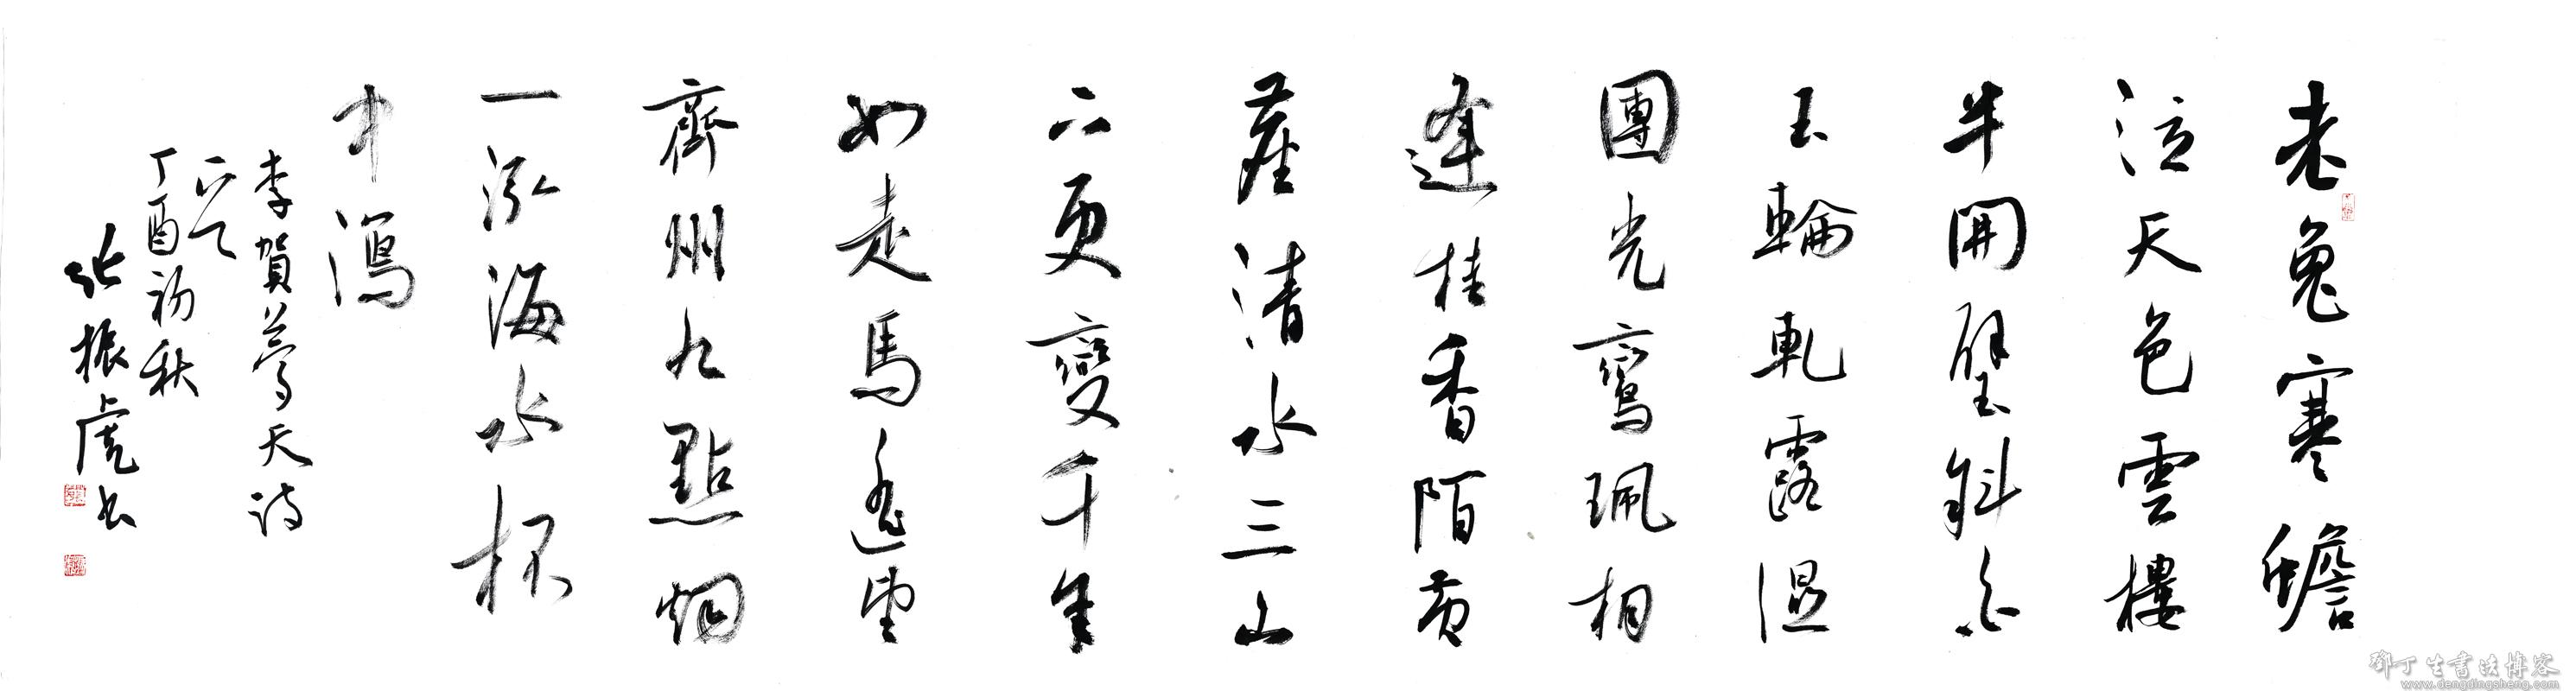 老兔寒蟾
泣天色雲樓
半開壁斜白
玉輪軋露濕
團光鸞珮相
逢桂香陌黃
塵清水三山
下更變千年
如走馬遙望
齊州九點烟
一泓海水杯
中瀉
李賀夢天詩
丁酉初秋
張振虎書
鄧丁生書法博客
www.dengdingsheng.com